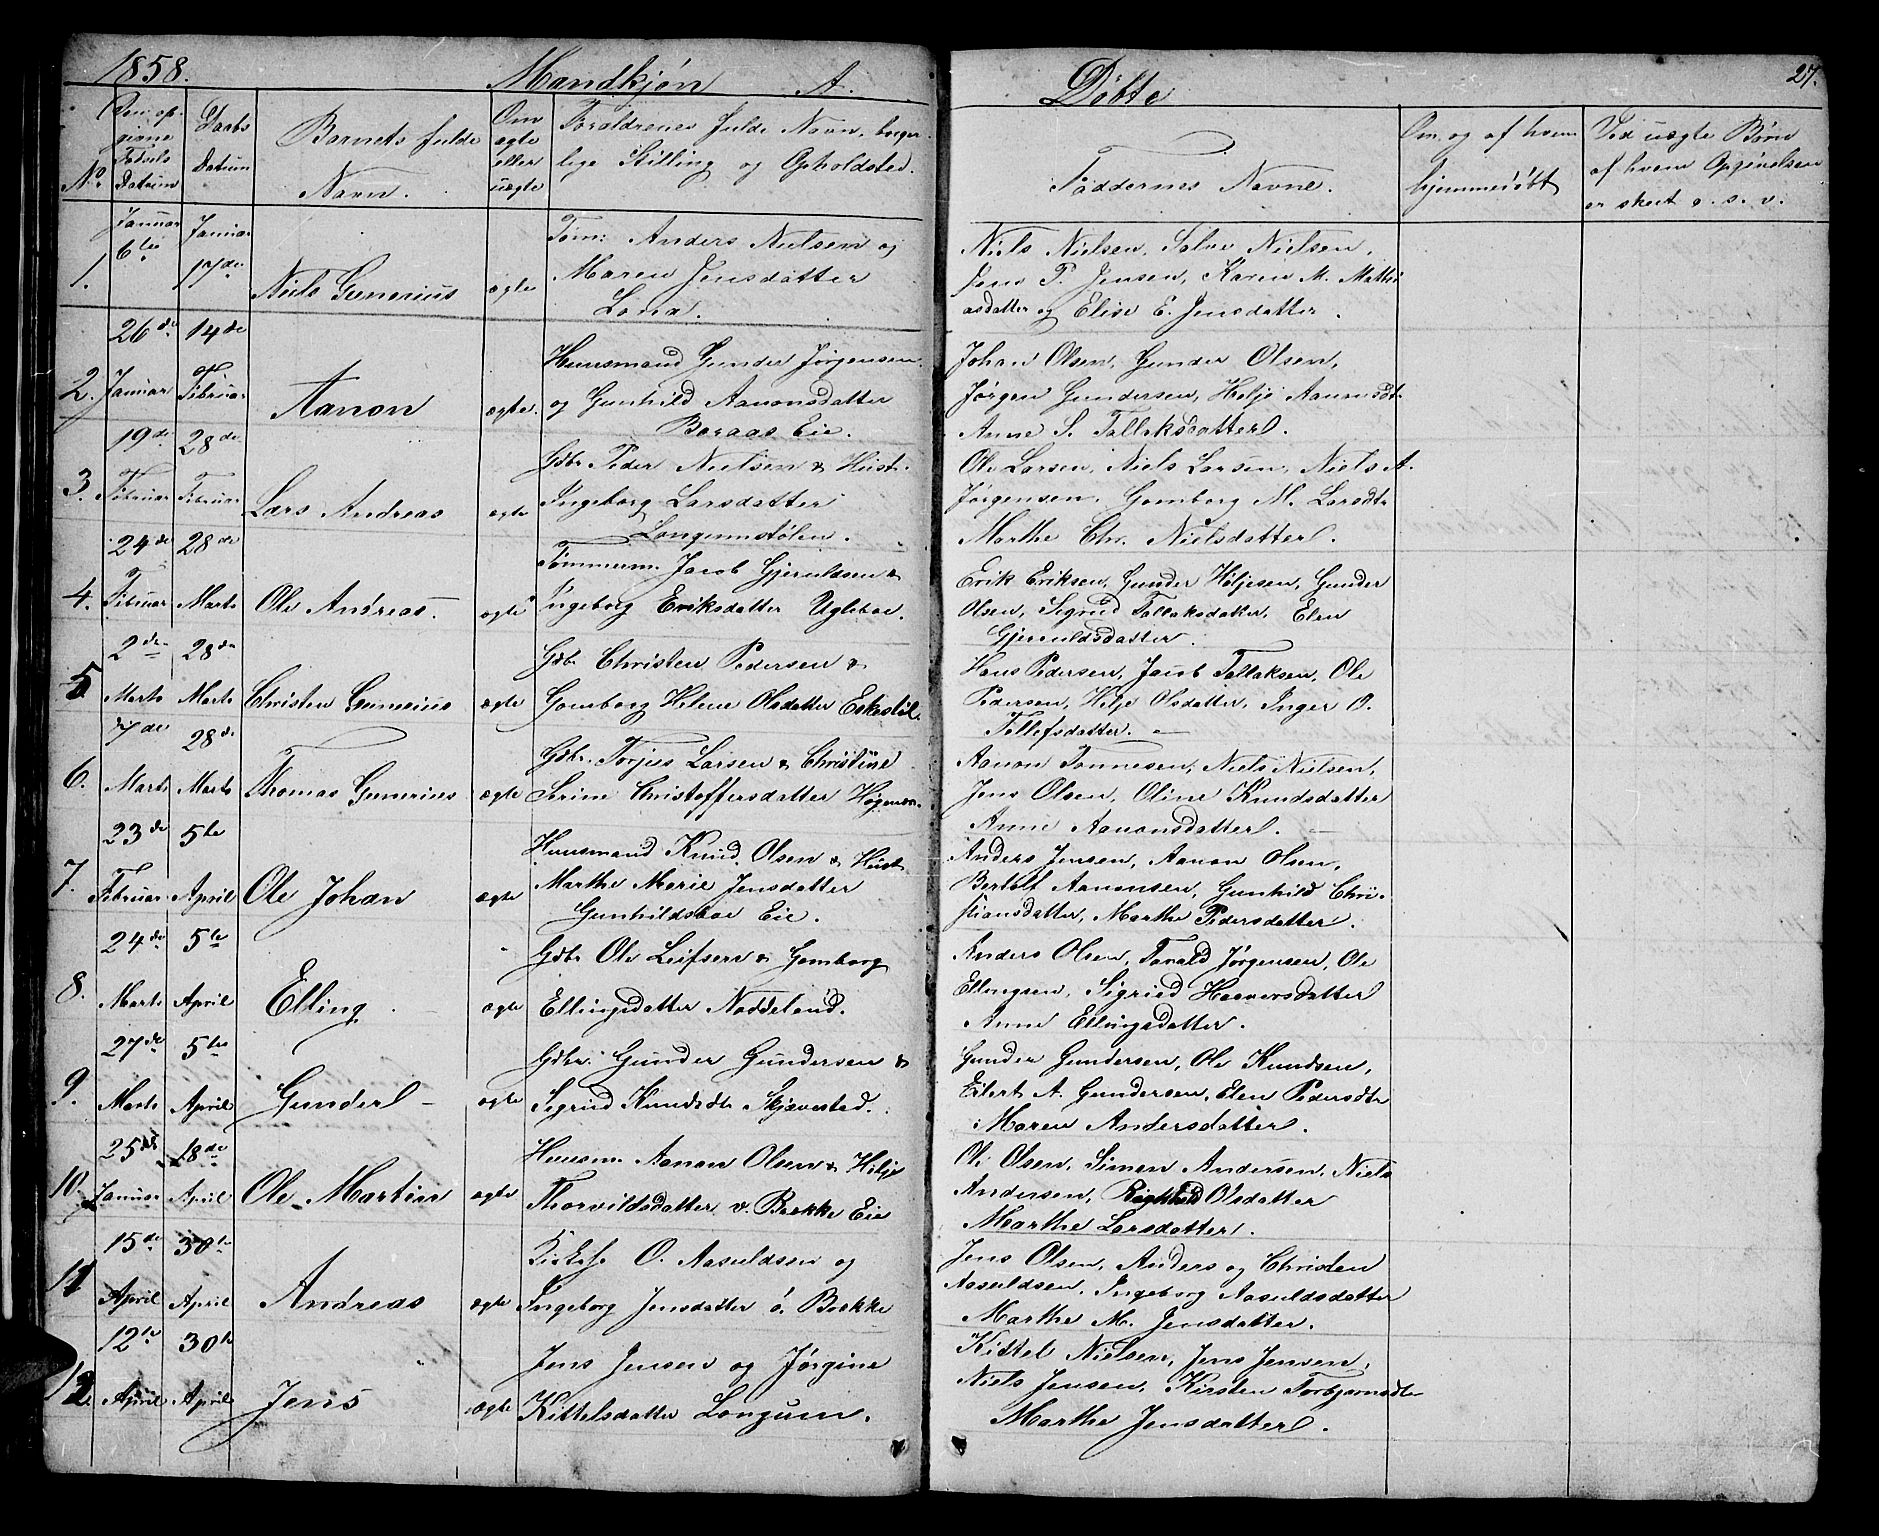 1858.
Mandkjøn A.
Døbte
27.
No.
Den opgivne Fødsels Datum
Daabs Datum
Barnets fulde Navn.
Om ægte eller uægte
Forældrenes fulde Navn, borgerlige Stilling og Opholdsted.
Faddernes Navne.
Om og af hvem hjemmedøbt
Ved uægte Børn af hvem Opgivelsen er skeet o. s. v.
1.
Januar 6te
Januar 17de
Niels Gunerius
ægte
Tøm: Anders Nielsen og
Maren Jensdatter
Niels Nielsen, Salve Nielsen,
Jens P. Jensen, Karen M. Mathi
asdatter og Elise E. Jensdatter.
2.
26de Januar
14de Februar
Aanon
ægte.
Huusmand Gunder Jørgensen
og Gunhild Aanonsdatter
Boraas Eie.
Johan Olsen, Gunder Olsen,
Jørgen Gundersen, Helje Aanonsdt.
Anne S. Tallaksdatter.
3.
19de Februar
28de Februar
Lars Andreas
ægte
Gdbr Peder Nielsen & Hustr.
Ingeborg Larsdatter
Longumstølen.
Ole Larsen, Niels Larsen, Niels A.
Jørgensen, Gomborg M. Larsdtr
Marthe Chr. Nielsdatter.
4.
24de Februar
28de Marts
Ole Andreas.
ægte
Tømmerm. Jacob Gjeruldsen &
Ingeborg Eriksdatter Ugleboe.
Erik Eriksen, Gunder Heljesen, Gunder
Olsen, Sigrid Tallaksdatter, Elen
Gjeruldsdatter.
5
2den Marts
28de Marts
Christen Gunerius
ægte
Gdbr Christen Pedersen &
Gomborg Helene Olsdatter Eskestøl.
Hans Pedersen, Jacob Tallaksen, Ole
Pedersen, Helje Olsdatter, Inger O.
Tellefsdatter.
6.
7de Marts
28de Marts
Thomas Gunerius
ægte
Gdbr. Torjus Larsen & Christine
Serine Christoffersdatter
Aanon Tønnesen, Niels Nielsen,
Jens Olsen, Oline Knudsdatter
Anne Aanonsdatter.
7.
23de Februar
5te April
Ole Johan
ægte
Huusmand Knud Olsen & Hust
Marthe Marie Jensdatter
Gunhildsboe Eie.
Anders Jensen, Aanon Olsen,
Bertolf Aanonsen, Gunhild Chri-
stiansdatter, Marthe Pedersdatter.
8.
24de Marts
5te April
Elling
ægte
Gdbr Ole Leifsen & Gomborg
Ellingsdatter Næddeland.
Anders Olsen, Tarald Jørgensen, Ole
Ellingsen, Sigried Haaversdatter
Anne Ellingsdatter.
9.
27de Marts
5te April
Gunder
ægte
Gdbr. Gunder Gundersen &
Sigried Knudsdtr Skjævested.
Gunder Gundersen, Ole Knudsen,
Eilert A. Gundersen, Elen Pedersdtr
Maren Andersdatter.
10.
25de Januar
18de April
Ole Martin
ægte
Huusm. Aanon Olsen & Helje
Thorvildsdatter v. Brække Eie
Ole Olsen, Simon Andersen, Niels
Andersen, Olsdatter
Marthe Larsdatter.
11
15de April
30te April
Andreas
ægte
O. Aasuldsen og
Ingeborg Jensdatter ø. Brække
Jens Olsen, Anders og Christen
Aasuldsen, Ingeborg Aasuldsdatter
Marthe M. Jensdatter.
12.
12te April
30te April
Jens
ægte
Jens Jensen og Jørgine
Kittelsdatter Longum.
Kittel Nielsen, Jens Jensen,
Niels Jensen, Kirsten Torbjørnsdtr
Marthe Jensdatter.